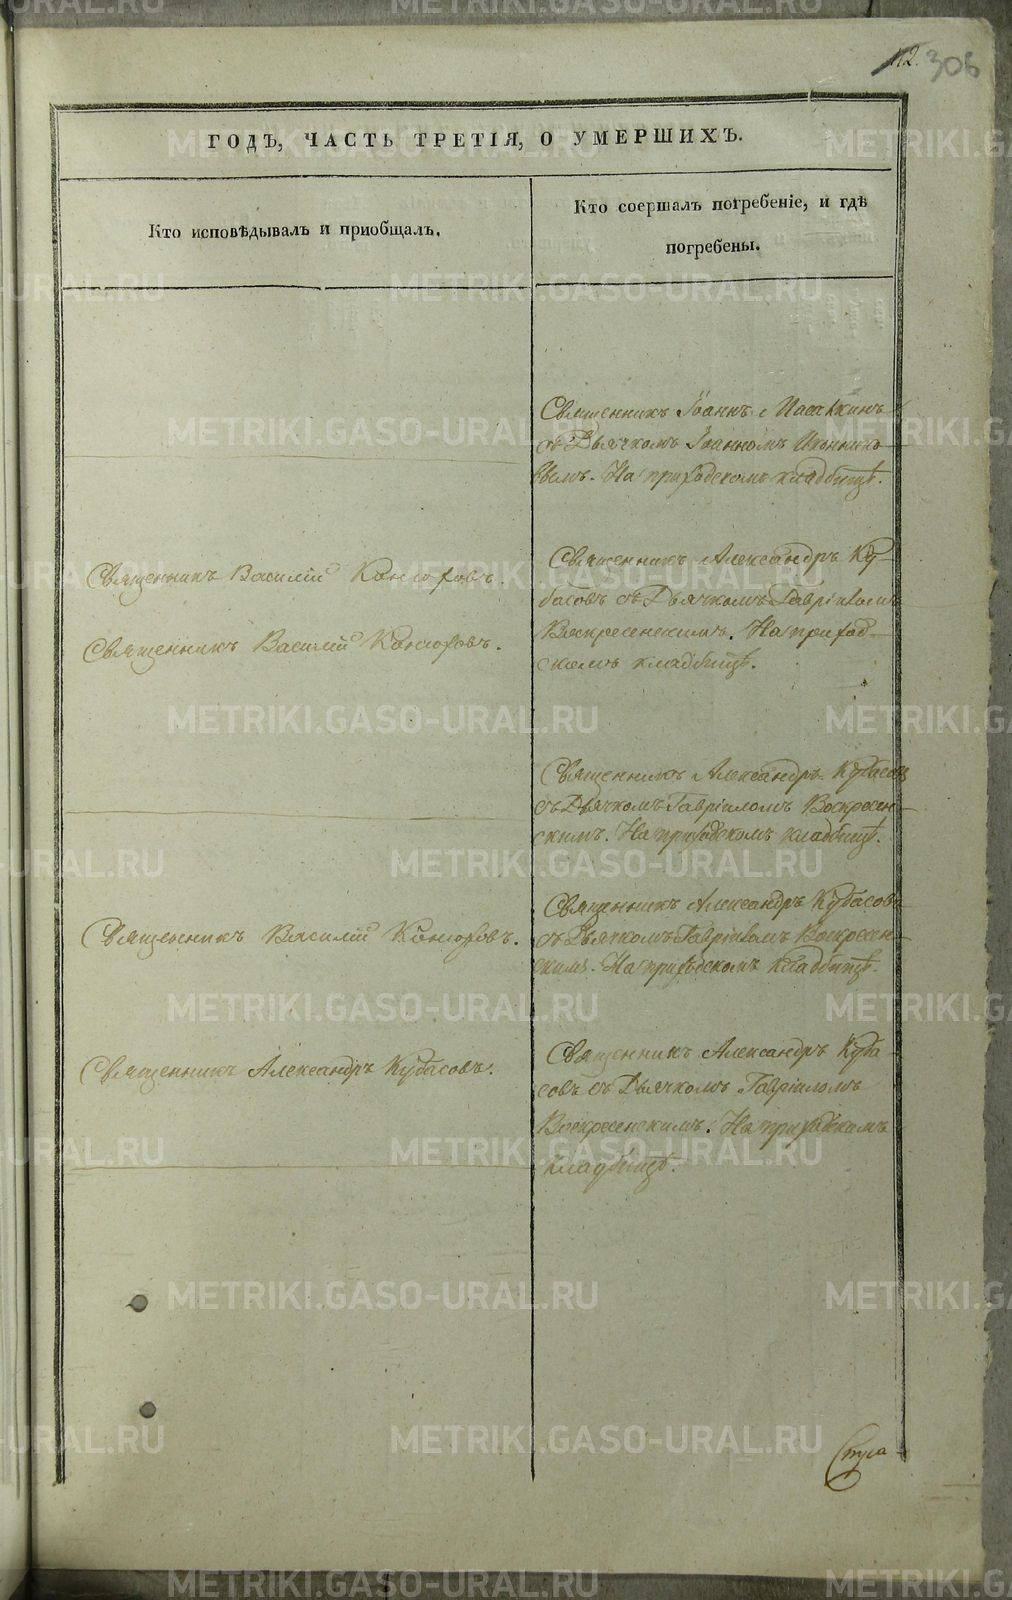 112. 306
ГОДЪ, ЧАСТЬ ТРЕТІЯ, О УМЕРШИХЪ.
Кто исповѣдывалъ и приобщалъ.
Кто соершалъ погребеніе, и гдѣ
погребены.
Священникъ Іоаннъ
съ Дьячкомъ Іоанномъ Иконнико
вымъ. На приходскомъ кладбищѣ.
Священникъ Василій Конюховъ.
Священникъ Василій Конюховъ.
Священникъ Александръ Ку-
басовъ съ Дьячкомъ Гавріиломъ
Воскресенскимъ. На приход-
скомъ кладбищѣ.
Священникъ Александръ Кубасовъ
съ Дьячкомъ Гавріиломъ Воскресен-
скимъ. На приходскомъ кладбищѣ.
Священникъ Василій Конюховъ.
Священникъ Александръ Кубасовъ
съ Дьячкомъ Гавріиломъ Воскресен-
скимъ. На приходскомъ кладбищѣ.
Священникъ Александръ Кубасовъ.
Священникъ Александръ Куба-
совъ съ Дьячкомъ Гавріиломъ
Воскресенскимъ. На приходскомъ
кладбищѣ.
METRIKI.GASO-URAL.RU